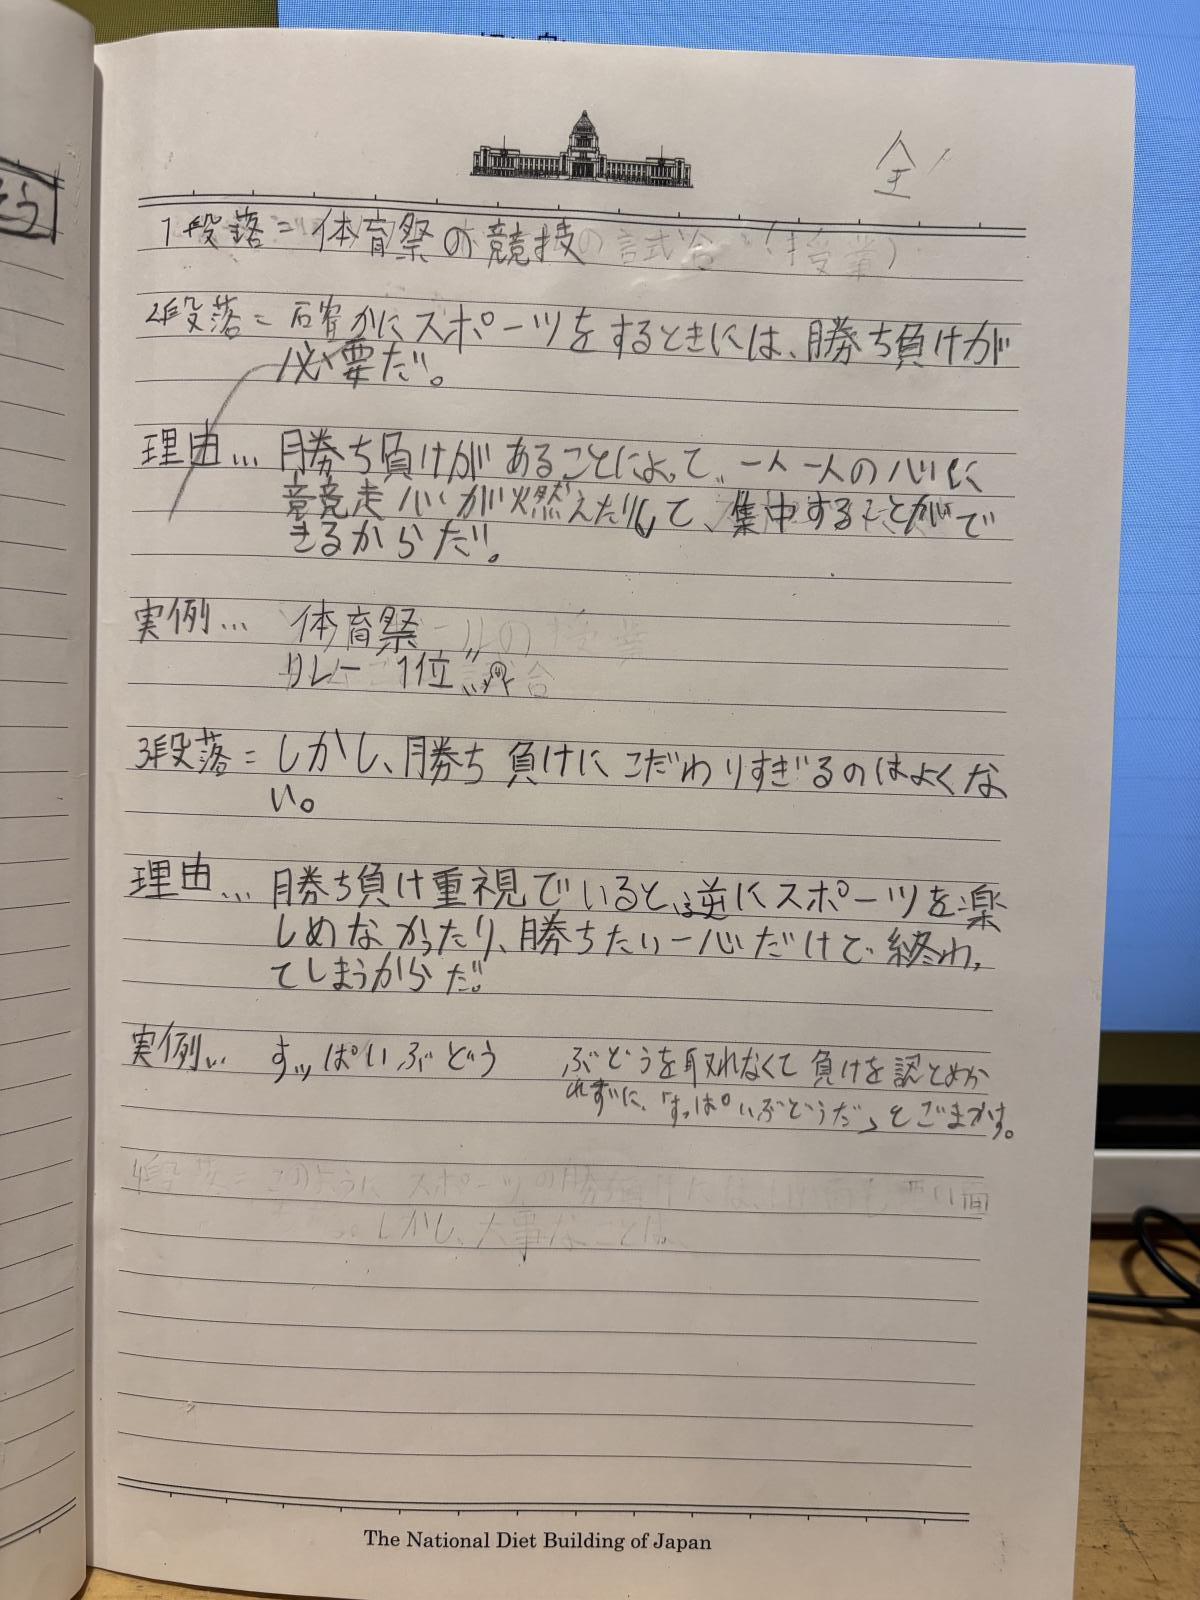 全
1段落=体育祭の競技
の試合(授業)
2段落=確かにスポーツをするときには、勝ち負けが
必要だ。
理由… 勝ち負けがあることによって、一人一人の心に
競走心が燃えたりして、集中することがで
きるからだ。
実例… 体育祭
ールの授業
リレー 1位
試合
3段落=しかし、勝ち負けにこだわりすぎるのはよくな
い。
理由… 勝ち負け重視でいると、逆にスポーツを楽
しめなかったり、勝ちたい一心だけで終わっ
てしまうからだ。
実例… すっぱいぶどう ぶどうを取れなくて負けを認とめか
れずに、「すっぱいぶどうだ」とごまかす。
4段落=このようにスポーツの勝ち負けには、いい面も悪い面
しかし、大事なことは、
The National Diet Building of Japan